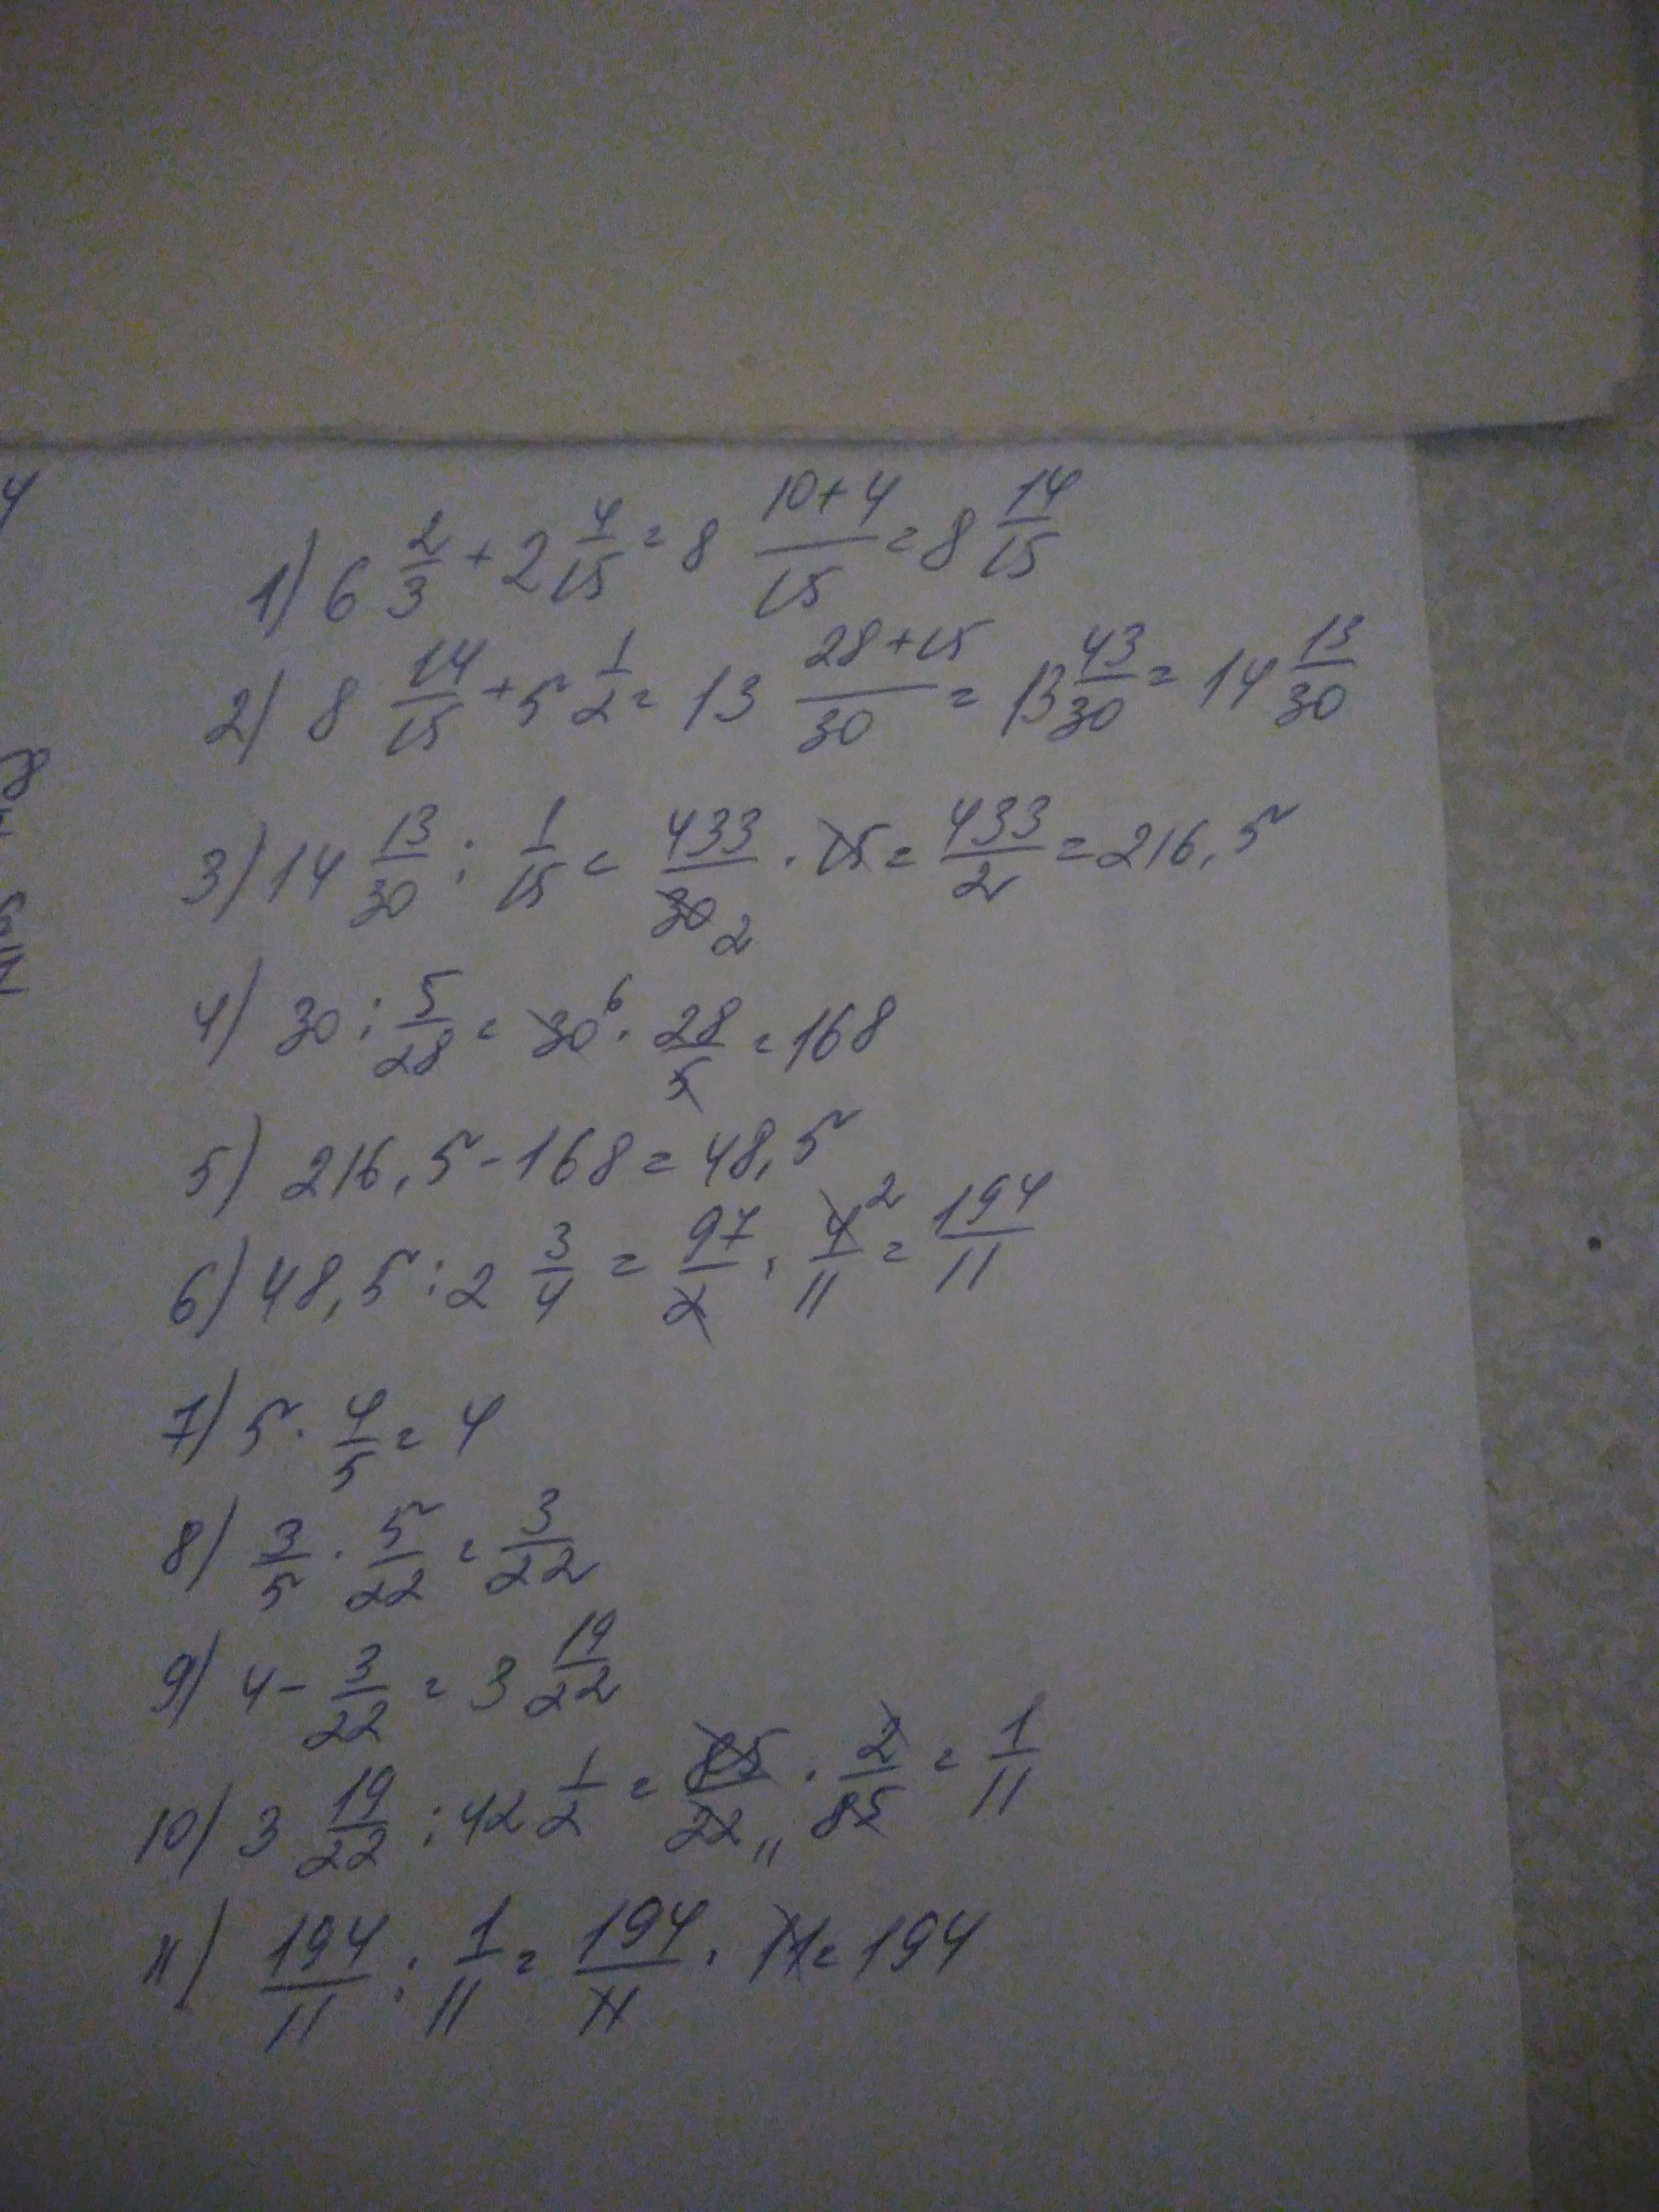 1) 6 2/3 + 2 4/15 = 8 (10+4)/15 = 8 14/15
2) 8 14/15 + 5 1/2 = 13 (28+15)/30 = 13 43/30 = 14 13/30
3) 14 13/30 : 1/15 = 433/30 2 · 15 = 433/2 = 216,5
4) 30 : 5/28 = 30 6 · 28/5 = 168
5) 216,5 - 168 = 48,5
6) 48,5 : 2 3/4 = 97/2 · 4 2/11 = 194/11
7) 5 · 4/5 = 4
8) 3/5 · 5/22 = 3/22
9) 4 - 3/22 = 3 19/22
10) 3 19/22 : 42 1/2 = 85/22 11 · 2/85 = 1/11
11) 194/11 : 1/11 = 194/11 · 11 = 194